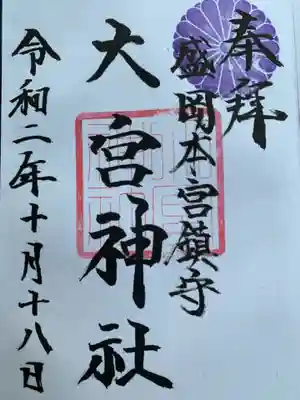 奉拝
盛岡本宮鎮守
大宮神社
令和二年十月十八日